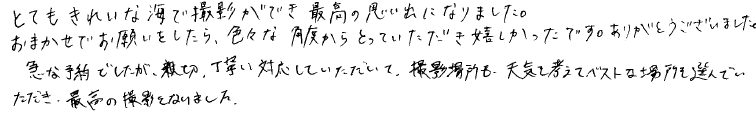 とてもきれいな海で撮影ができ最高の思い出になりました。
おまかせでお願いをしたら、色々な角度からとっていただき嬉しかったです。ありがとうございました
急な予約でしたが、親切、丁寧い対応していただいて、撮影場所も天気を考えてベストな場所を選んでい
ただき、最高の撮影となりました。